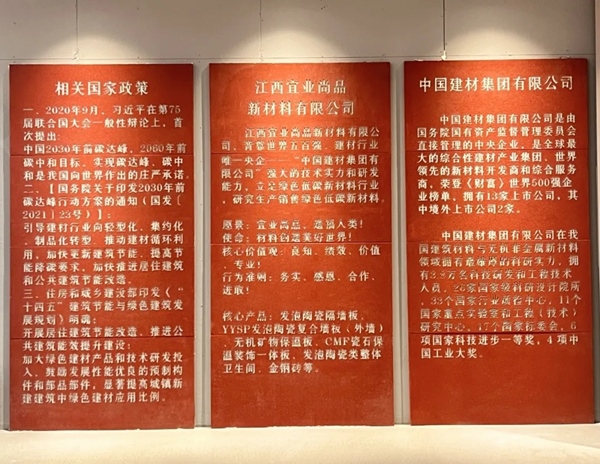 相关国家政策
一、2020年9月、习近平在第75
届联合国大会一般性辩论上，首
次提出：
中国2030年前碳达峰，2060年前
碳中和目标。实现碳达峰，碳中
和是我国向世界作出的庄严承诺。
二、【国务院关于印发2030年前
碳达峰行动方案的通知（国发〔
2021〕23号）】：
引导建材行业向轻型化、集约化
、制品化转型。推动建材循环利
用，加快更新建筑节能、提高节
能降碳要求。加快推进居住建筑
和公共建筑节能改造。
三、住房和城乡建设部印发《“
十四五”建筑节能与绿色建筑发
展规划》明确：
开展居住建筑节能改造、推进公
共建筑能效提升建设；
加大绿色建材产品和技术研发投
入、鼓励发展性能优良的预制构
件和部品部件，显著提高城镇新
建建筑中绿色建材应用比例。
江西宜业尚品
新材料有限公司
江西宜业尚品新材料有限公
司，背靠世界五百强、建材行业
唯一央企——“中国建材集团有
限公司”强大的技术实力和研发
能力，立足绿色低碳新材料行业
，研究生产销售绿色低碳新材料。
愿景：宜业尚品、造福人类！
使命：材料创造美好世界！
核心价值观：良知、绩效、价值
、专业！
行为准则：务实、感恩、合作、
进取！
核心产品：发泡陶瓷隔墙板、
YYSP发泡陶瓷复合墙板（外墙）
、无机矿物保温板、CMF瓷石保
温装饰一体板、发泡陶瓷类整体
卫生间、金钢砖等。
中国建材集团有限公司
中国建材集团有限公司是由
国务院国有资产监督管理委员会
直接管理的中央企业，是全球最
大的综合性建材产业集团、世界
领先的新材料开发商和综合服务
商，荣登《财富》世界500强企
业榜单，拥有13家上市公司，其
中境外上市公司2家。
中国建材集团有限公司在我
国建筑材料与无机非金属新材料
领域拥有最雄厚的科研实力，拥
有3.8万名科技研发和工程技术
人员，26家国家级科研设计院所
，33个国家行业质检中心，11个
国家重点实验室和工程（技术）
研究中心，17个国家标委会，6
项国家科技进步一等奖，4 项中
国工业大奖。